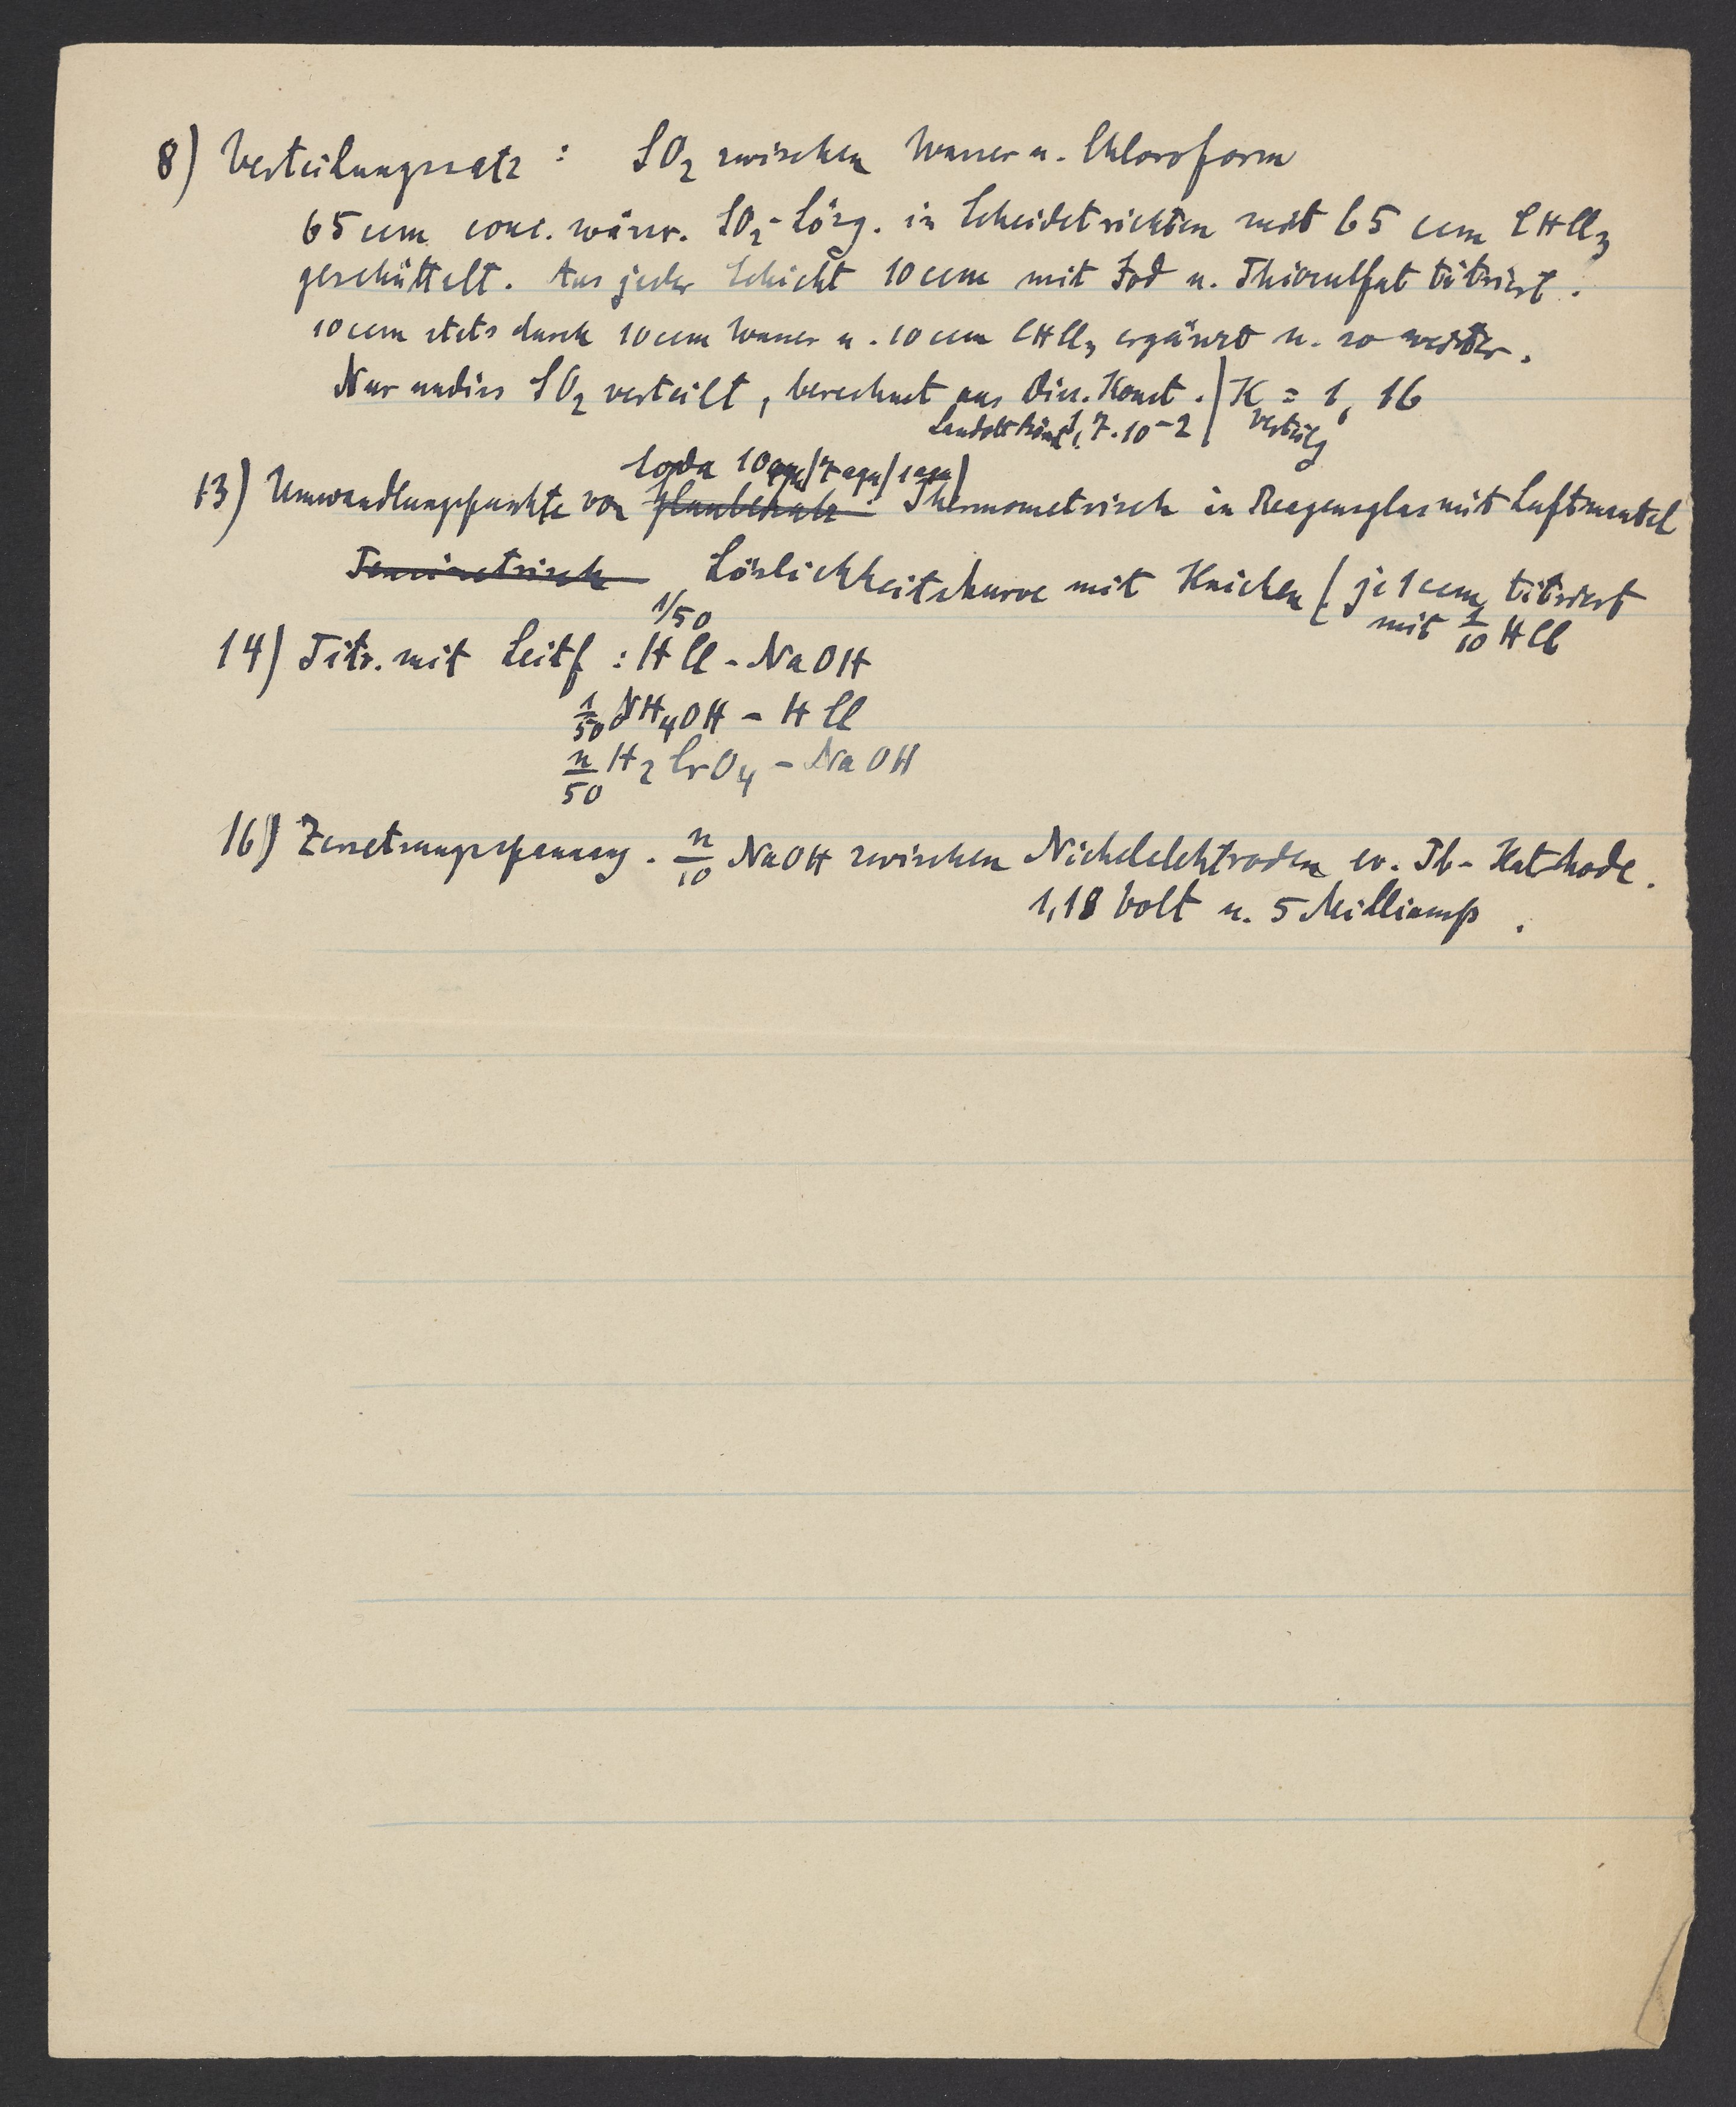 8) Verteilungssatz : SO2 zwischen Wasser u. Chloroform
65 ccm conc. wässr. SO2-Lösg. in Scheidetrichter mit 65 ccm CHCl3
geschüttelt. Aus jeder Schicht 10 ccm mit Jod u. Thiosulfat titriert.
10 ccm stets durch 10 ccm Wasser u. 10 ccm CHCl3 ergänzt u. so weiter.
Nur undiss SO2 verteilt, berechnet aus Diss. Konst. | K = 1,16
Landolt Börnst. 1,7.10-2 | Verteilg
Soda 10 aqu/7 aqu/1 aqu)
13) Umwandlungspunkte von Glaubersalz : Thermometrisch in Reagensglas mit Luftmantel
Tensimetrisch Löslichkeitskurve mit Knicken ( je 1 ccm titriert
mit 1/10 HCl
1/50
14) Titr. mit Leitf : HCl - NaOH
1/50 NH4OH - HCl
n/50 H2CrO4 - NaOH
16) Zersetzungsspannung. n/10 NaOH zwischen Nickelelektroden ev. Pb-Kathode.
1,18 Volt u. 5 Milliamp.